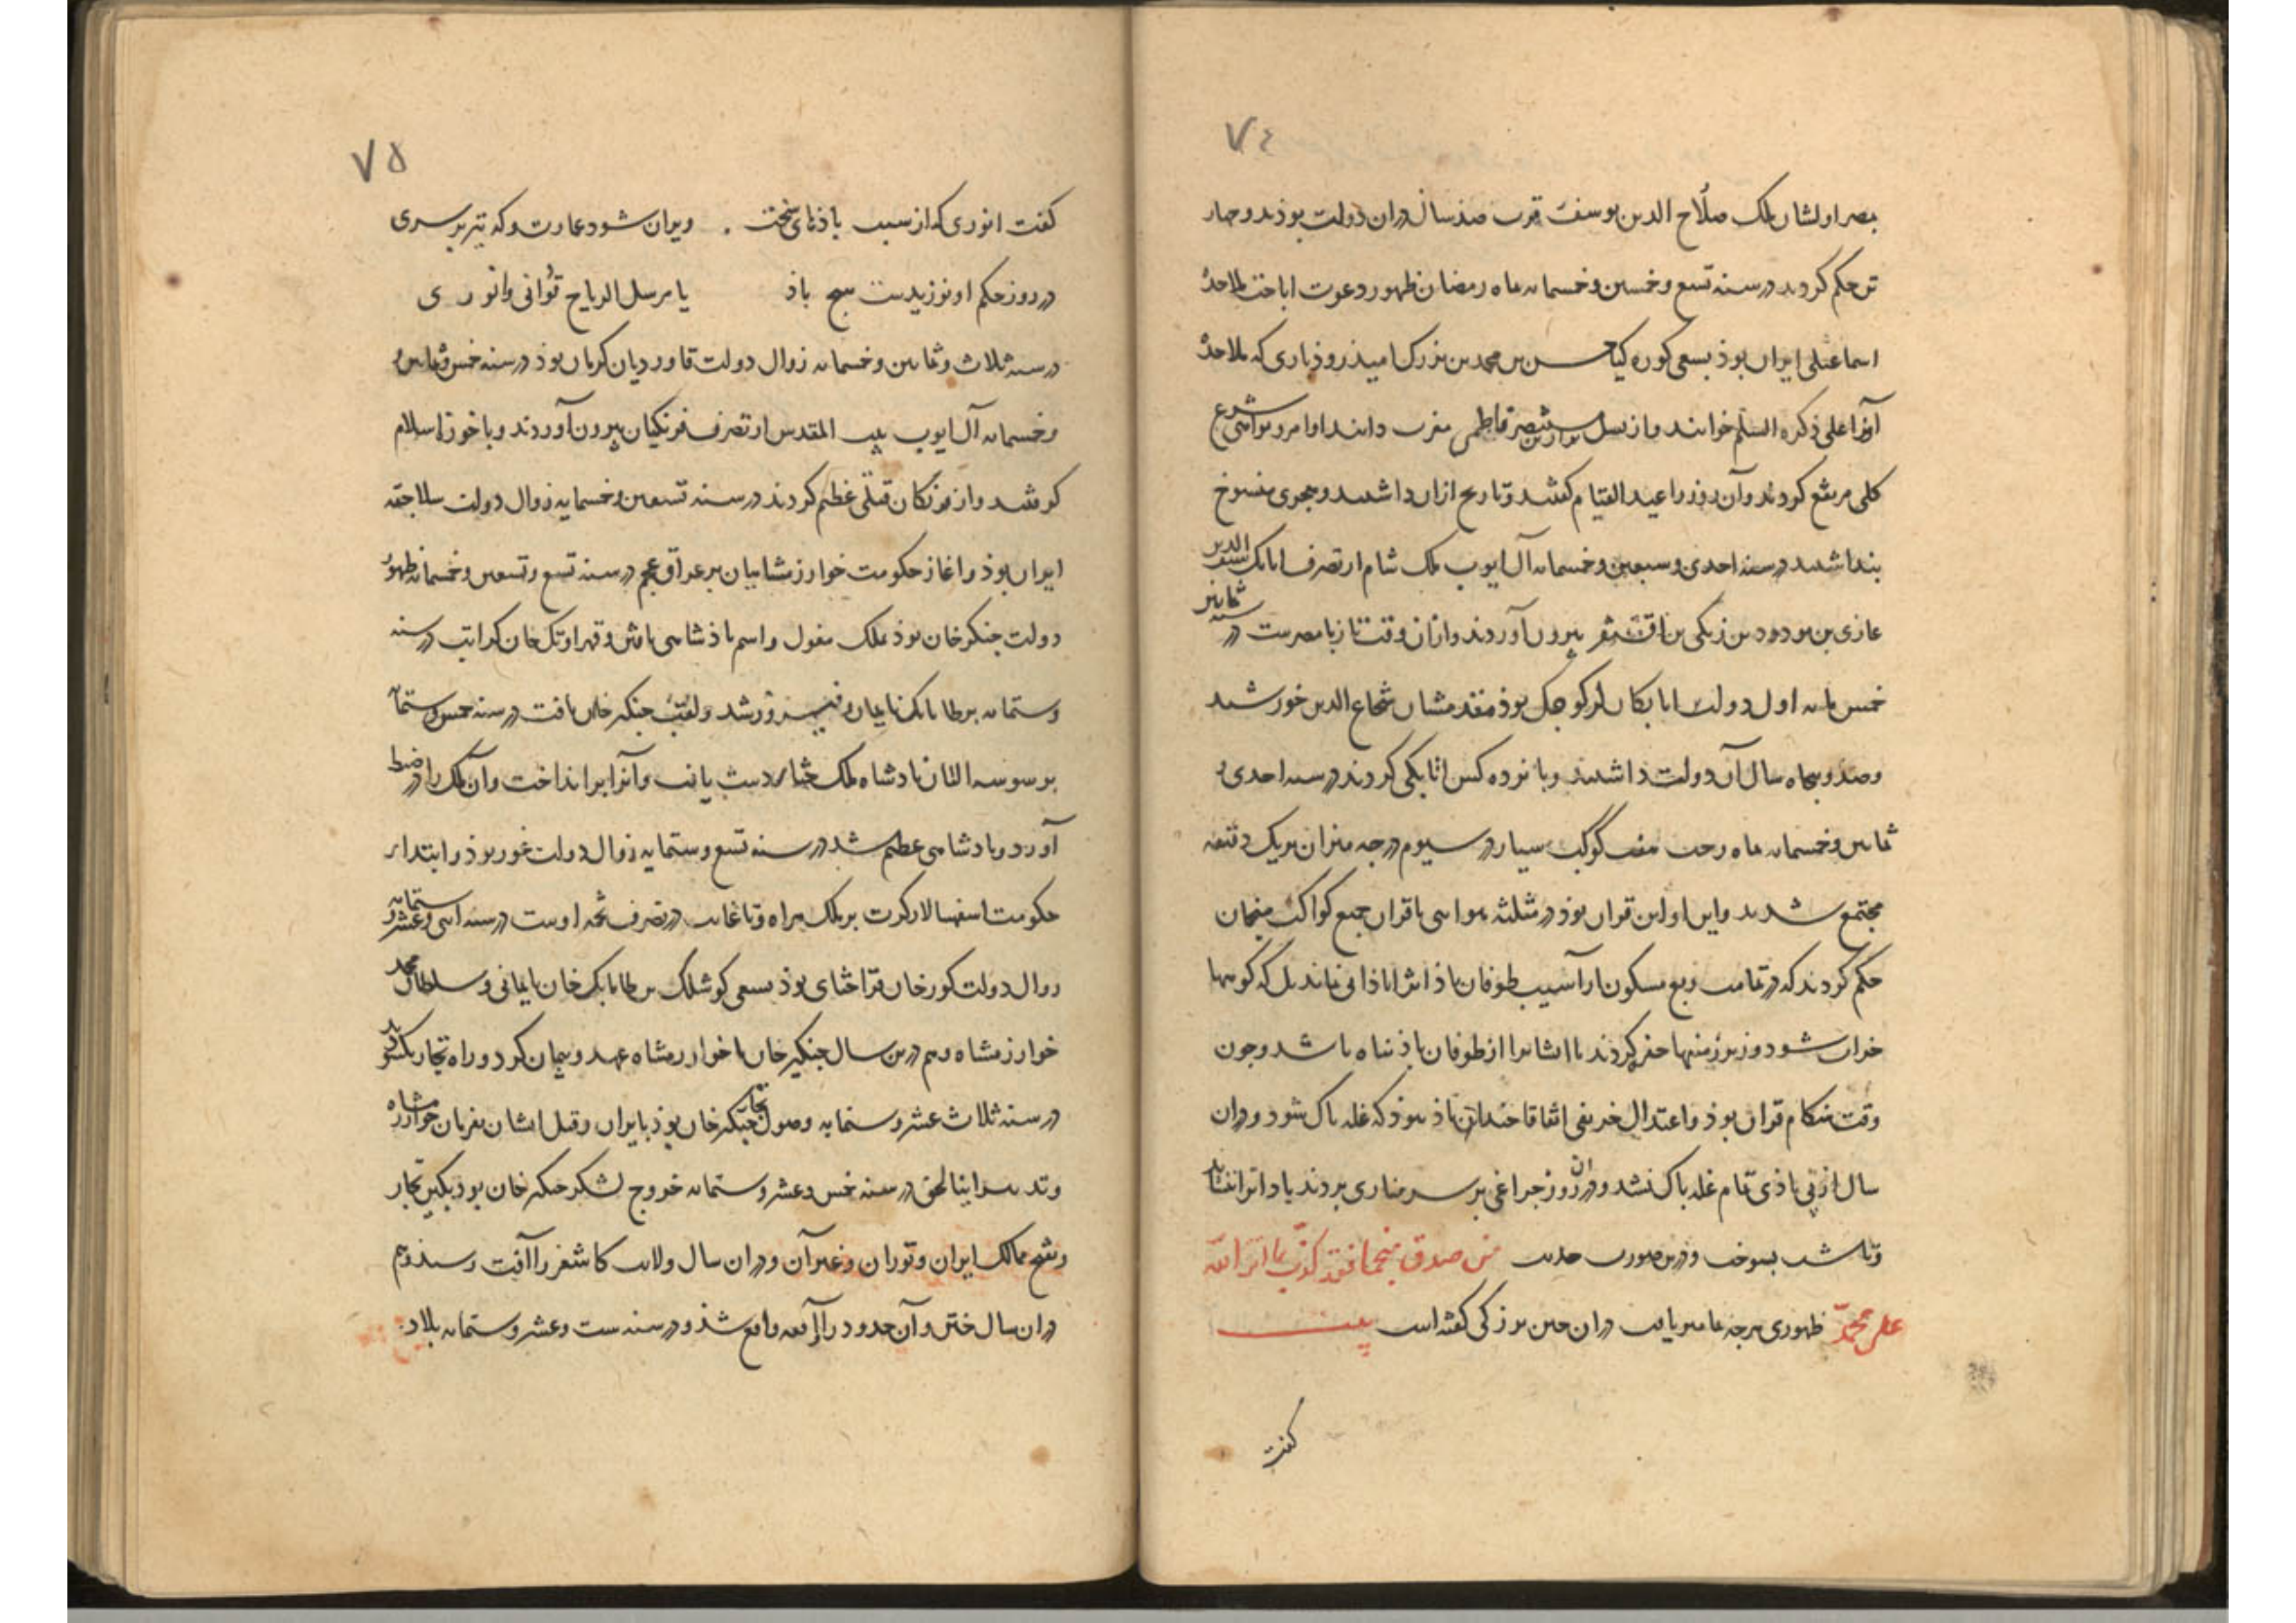 ٧٤
بمصر اولشان ملک صلاح الدین یوسف قرب صد سال دران دولت بوذند و چهار
تن حکم کردند در سنه تسع و خمسین و خمسمایه ماه رمضان ظهور دعوت اباحت ملاحدهٔ
اسماعیلی ایران بوذ بسعی کوره کیا حسن بن محمد بن بزرک امید روذباری که ملاحده
آنرا علی ذکره السلام خوانند و از نسل نزار بن مستنصر فاطمی مغرب دانند اوامر و نواهی شرع
کلی مرتفع کردند و آن روز را عید القیام کفتند و تاریخ ازان داشتند و هجری منسوخ
بنداشتند در سنه احدی و سبعین و خمسمایه آل ایوب ملک شام از تصرف اتابک سیف الدین
غازی بن مودود بن زنکی بن اقسنقر بیرون آوردند و ازان وقت تا زیا مصرست در سنه ثمانین
خمسمایه اول دولت اتابکان لر کوچک بوذ مقدمشان شجاع الدین خورشید
و صد و پنجاه سال آن دولت داشتند و یانزده کس اتابکی کردند در سنه احدی و
ثمانین و خمسمایه ماه رجب هفت کوکب سیار در سیوم درجه میزان بریک دقیقه
مجتمع شدند و این اولین قران بوذ در مثلثه هوایی با قران جمیع کواکب منجمان
حکم کردند که در تمامت ربع مسکون از آسیب طوفان باذ اثر اباذانی نماند بل که کوهها
خراب شود و زیر زمینها حفر کردند تا ایشانرا از طوفان باذ پناه باشد و چون
وقت هنکام قران بوذ و اعتدال خریفی اتفاقا چندان باذ نبوذ که غله باک شود و دران
سال از بی باذی تمام غله باک نشد و دران روز چراغی بر سر مناری بردند باد انرا ننشاند
و تا شب بسوخت و درین صورت حدیث من صدق منجما فقد کذب بما انزل الله
علی محمد ظهوری هرچه تمامتر یافت دران حین بزرکی کفته است بیت
کفت
٧٥
کفت انوری که از سبب باذهای سخت . ویران شود عمارت و که نیز بر سری
در روز حکم او نوزیدست هیچ باذ یا مرسل الریاح تو دانی و انوری
در سنه ثلاث و ثمانین و خمسمایه زوال دولت قاوردیان کرمان بوذ در سنه خمس و ثمانین
و خمسمایه آل ایوب بیت المقدس از تصرف فرنکیان بیرون آوردند و با حوزه اسلام
کرفتند و از فرنکان قتلی عظیم کردند در سنه تسعین و خمسمایه زوال دولت سلاجقه
ایران بوذ و اغاز حکومت خوارزمشاهیان بر عراق عجم در سنه تسع و تسعین و خمسمایه ظهور
دولت چنکز خان بوذ بملک مغول و اسم باذشاهی یافتن و قهر اونک خان کرایت در سنه
و ستمایه بر تایانک نایمان فیروز شد و لقب چنکیز خان یافت در سنه خمس و ستمایه
بر سوسه التان پادشاه ملک ختای دست یافت و آنرا برانداخت و آن ملک را در ضبط
آورد و پادشاهی عظیم شد در سنه تسع و ستمایه زوال دولت غور بوذ و ابتداء
حکومت اسفهسالار کرت بر ملک هراه و تا غایت در تصرف تخمه اوست در سنه اثنی و عشر و ستمایه
زوال دولت کورخان قراختای بوذ بسعی کوشلک بن تایانک خان نایمانی و سلطان محمد
خوارزمشاه و هم درین سال چنکیز خان با خوارزمشاه عهد و پیمان کرد و راه تجار بکشودند
در سنه ثلاث عشر و ستمایه وصول تجار چنکیز خان بوذ بایران و قتل ایشان بفرمان خوارزمشاه
و تدبیر اینالحق در سنه خمس و عشر و ستمایه خروج لشکر چنکیز خان بوذ بکین تجار
و فتح ممالک ایران و توران و غیر آن و دران سال ولایت کاشغر را آفت رسید و هم
دران سال ختن و آن حدود را آن واقعه واقع شذ و در سنه ست و عشر و ستمایه بلاد